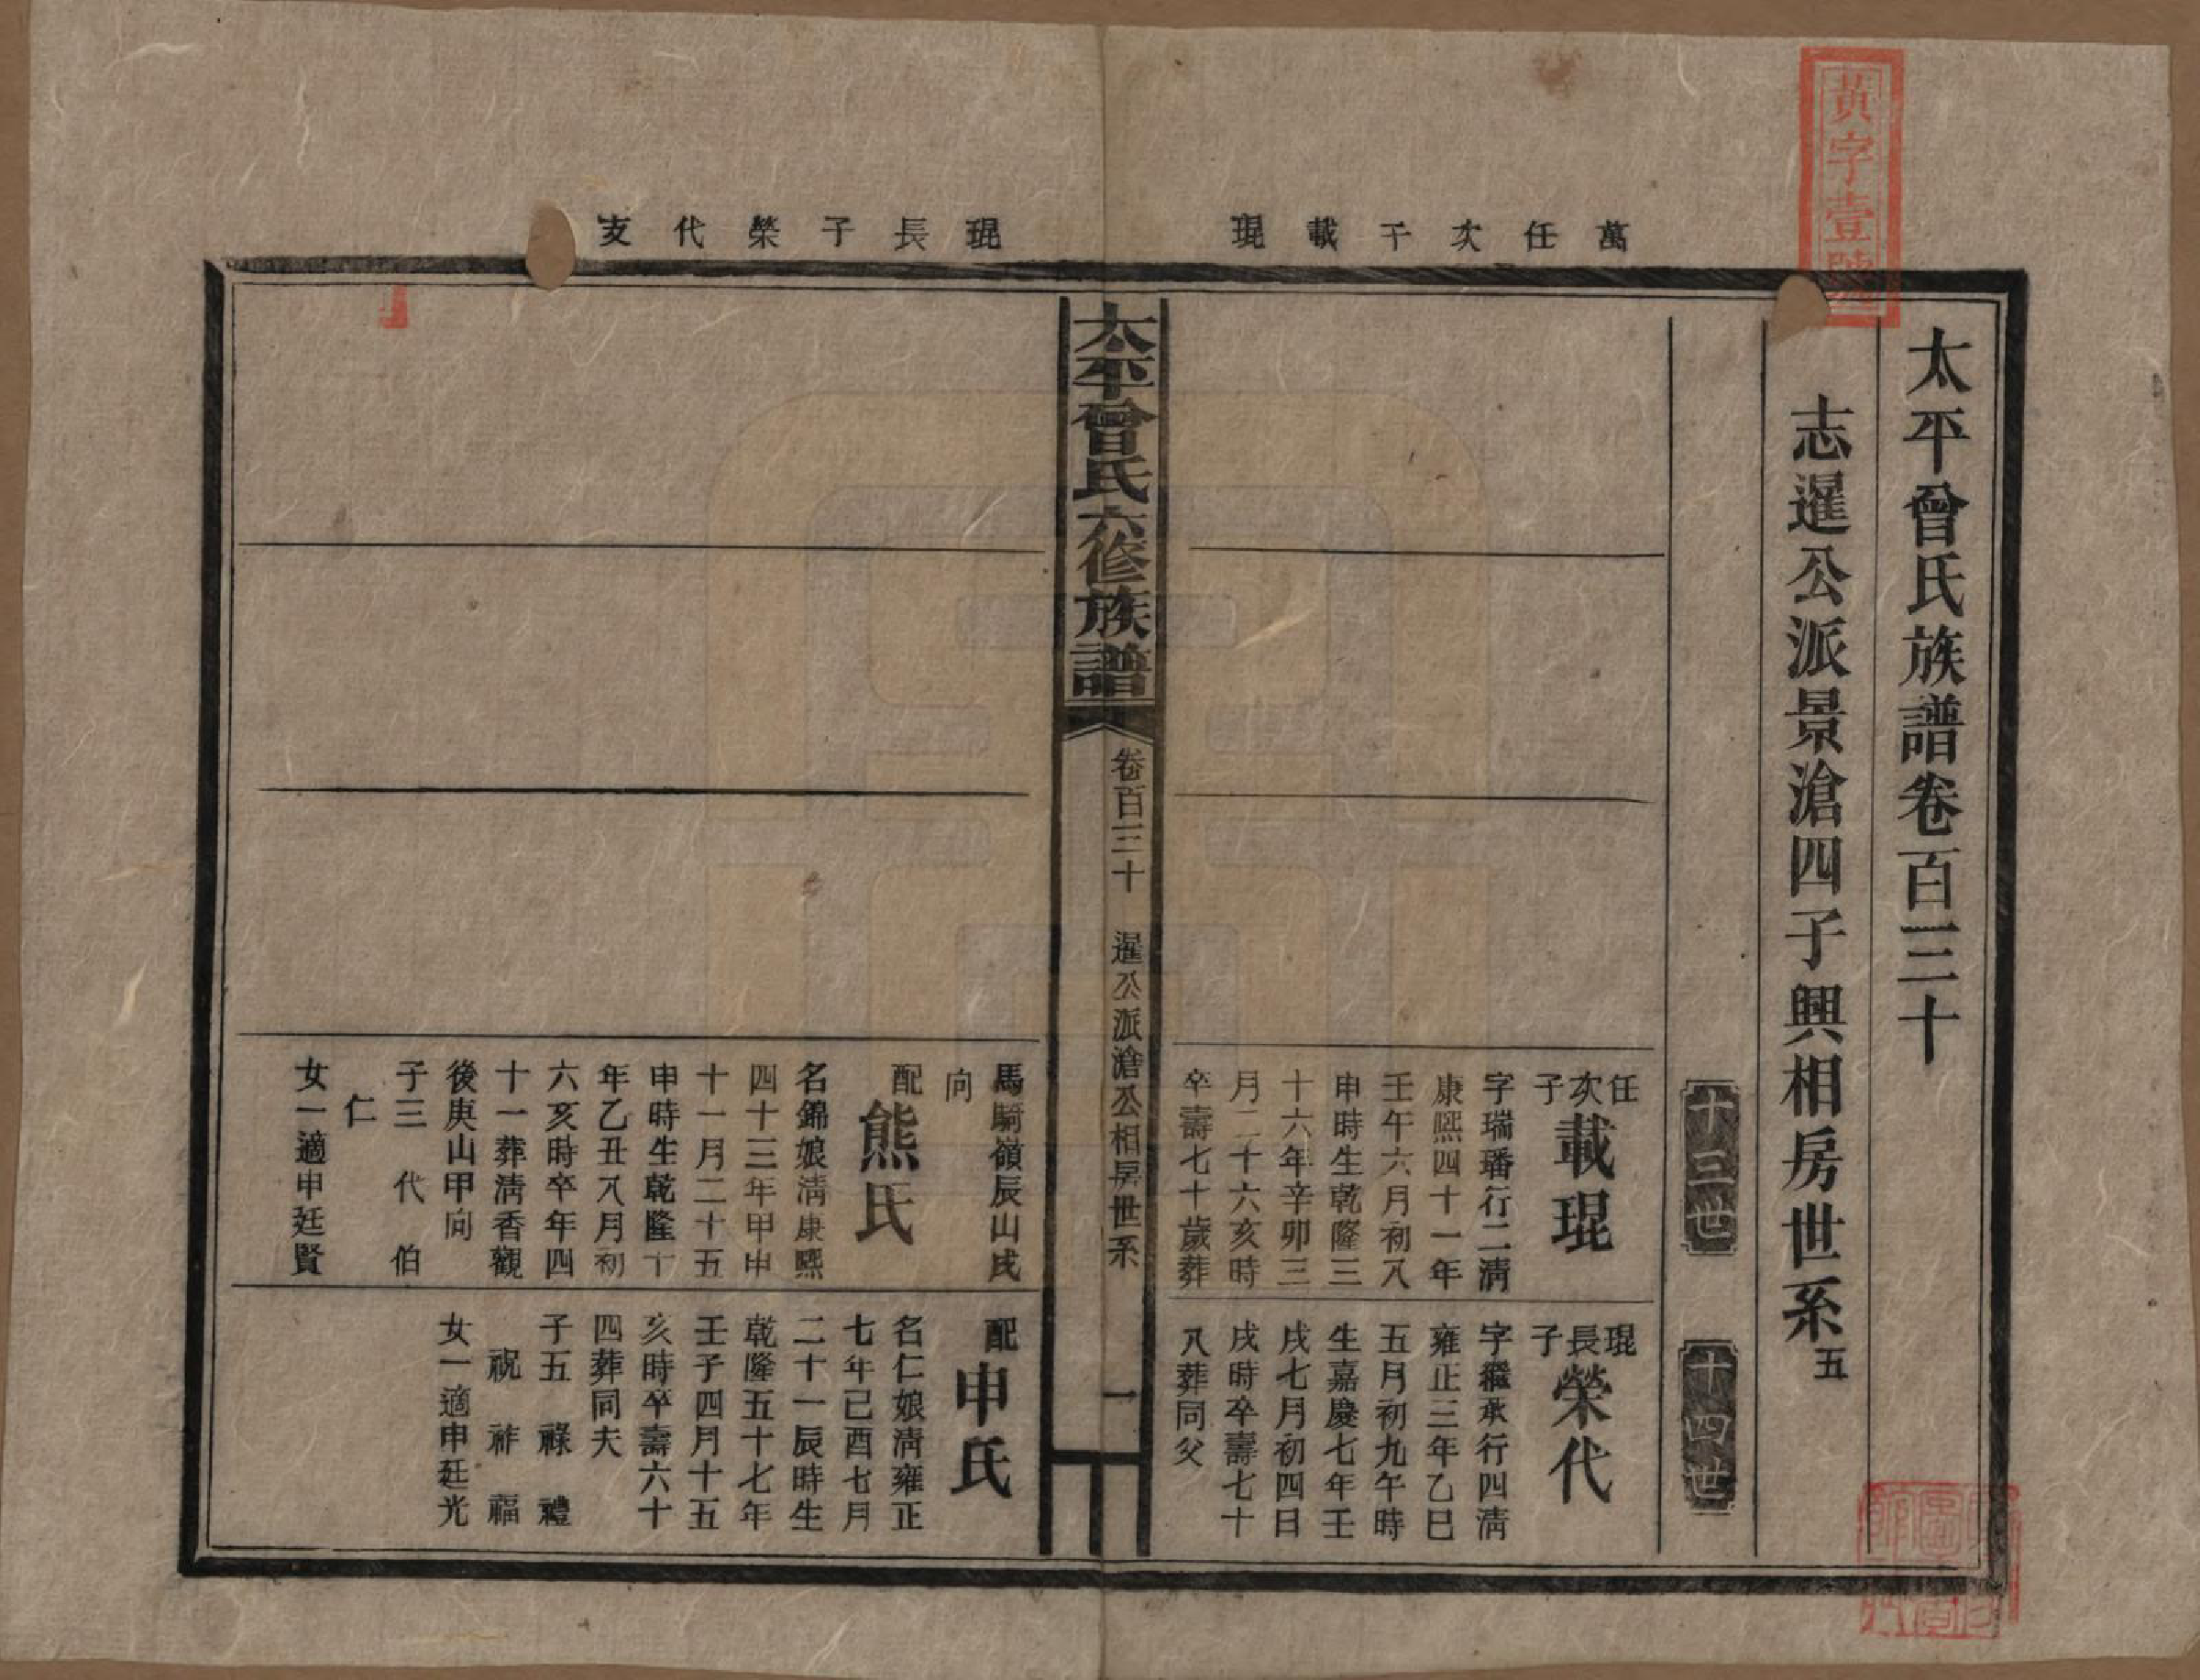 黃字壹號
太平曾氏族譜卷百三十
志暹公派景滄四子興相房世系五
十三世
十四世
萬任次子載琨
任次子載琨
字瑞璠行二清
康熙四十一年
壬午六月初八
申時生乾隆三
十六年辛卯三
月二十六亥時
卒壽七十歲葬
琨長子榮代
字繼承行四清
雍正三年乙巳
五月初九午時
生嘉慶七年壬
戌七月初四日
戌時卒壽七十
八葬同父
太平曾氏六修族譜
卷百三十
暹公派滄公相房世系
一
琨長子榮代支
馬騎嶺辰山戌
向
配熊氏
名錦娘清康熙
四十三年甲申
十一月二十五
申時生乾隆十
年乙丑八月初
六亥時卒年四
十一葬清香觀
後庚山甲向
子三 代 伯
仁
女一適申廷賢
配申氏
名仁娘清雍正
七年己酉七月
二十一辰時生
乾隆五十七年
壬子四月十五
亥時卒壽六十
四葬同夫
子五 祿 禮
祝 祚 福
女一適申廷光